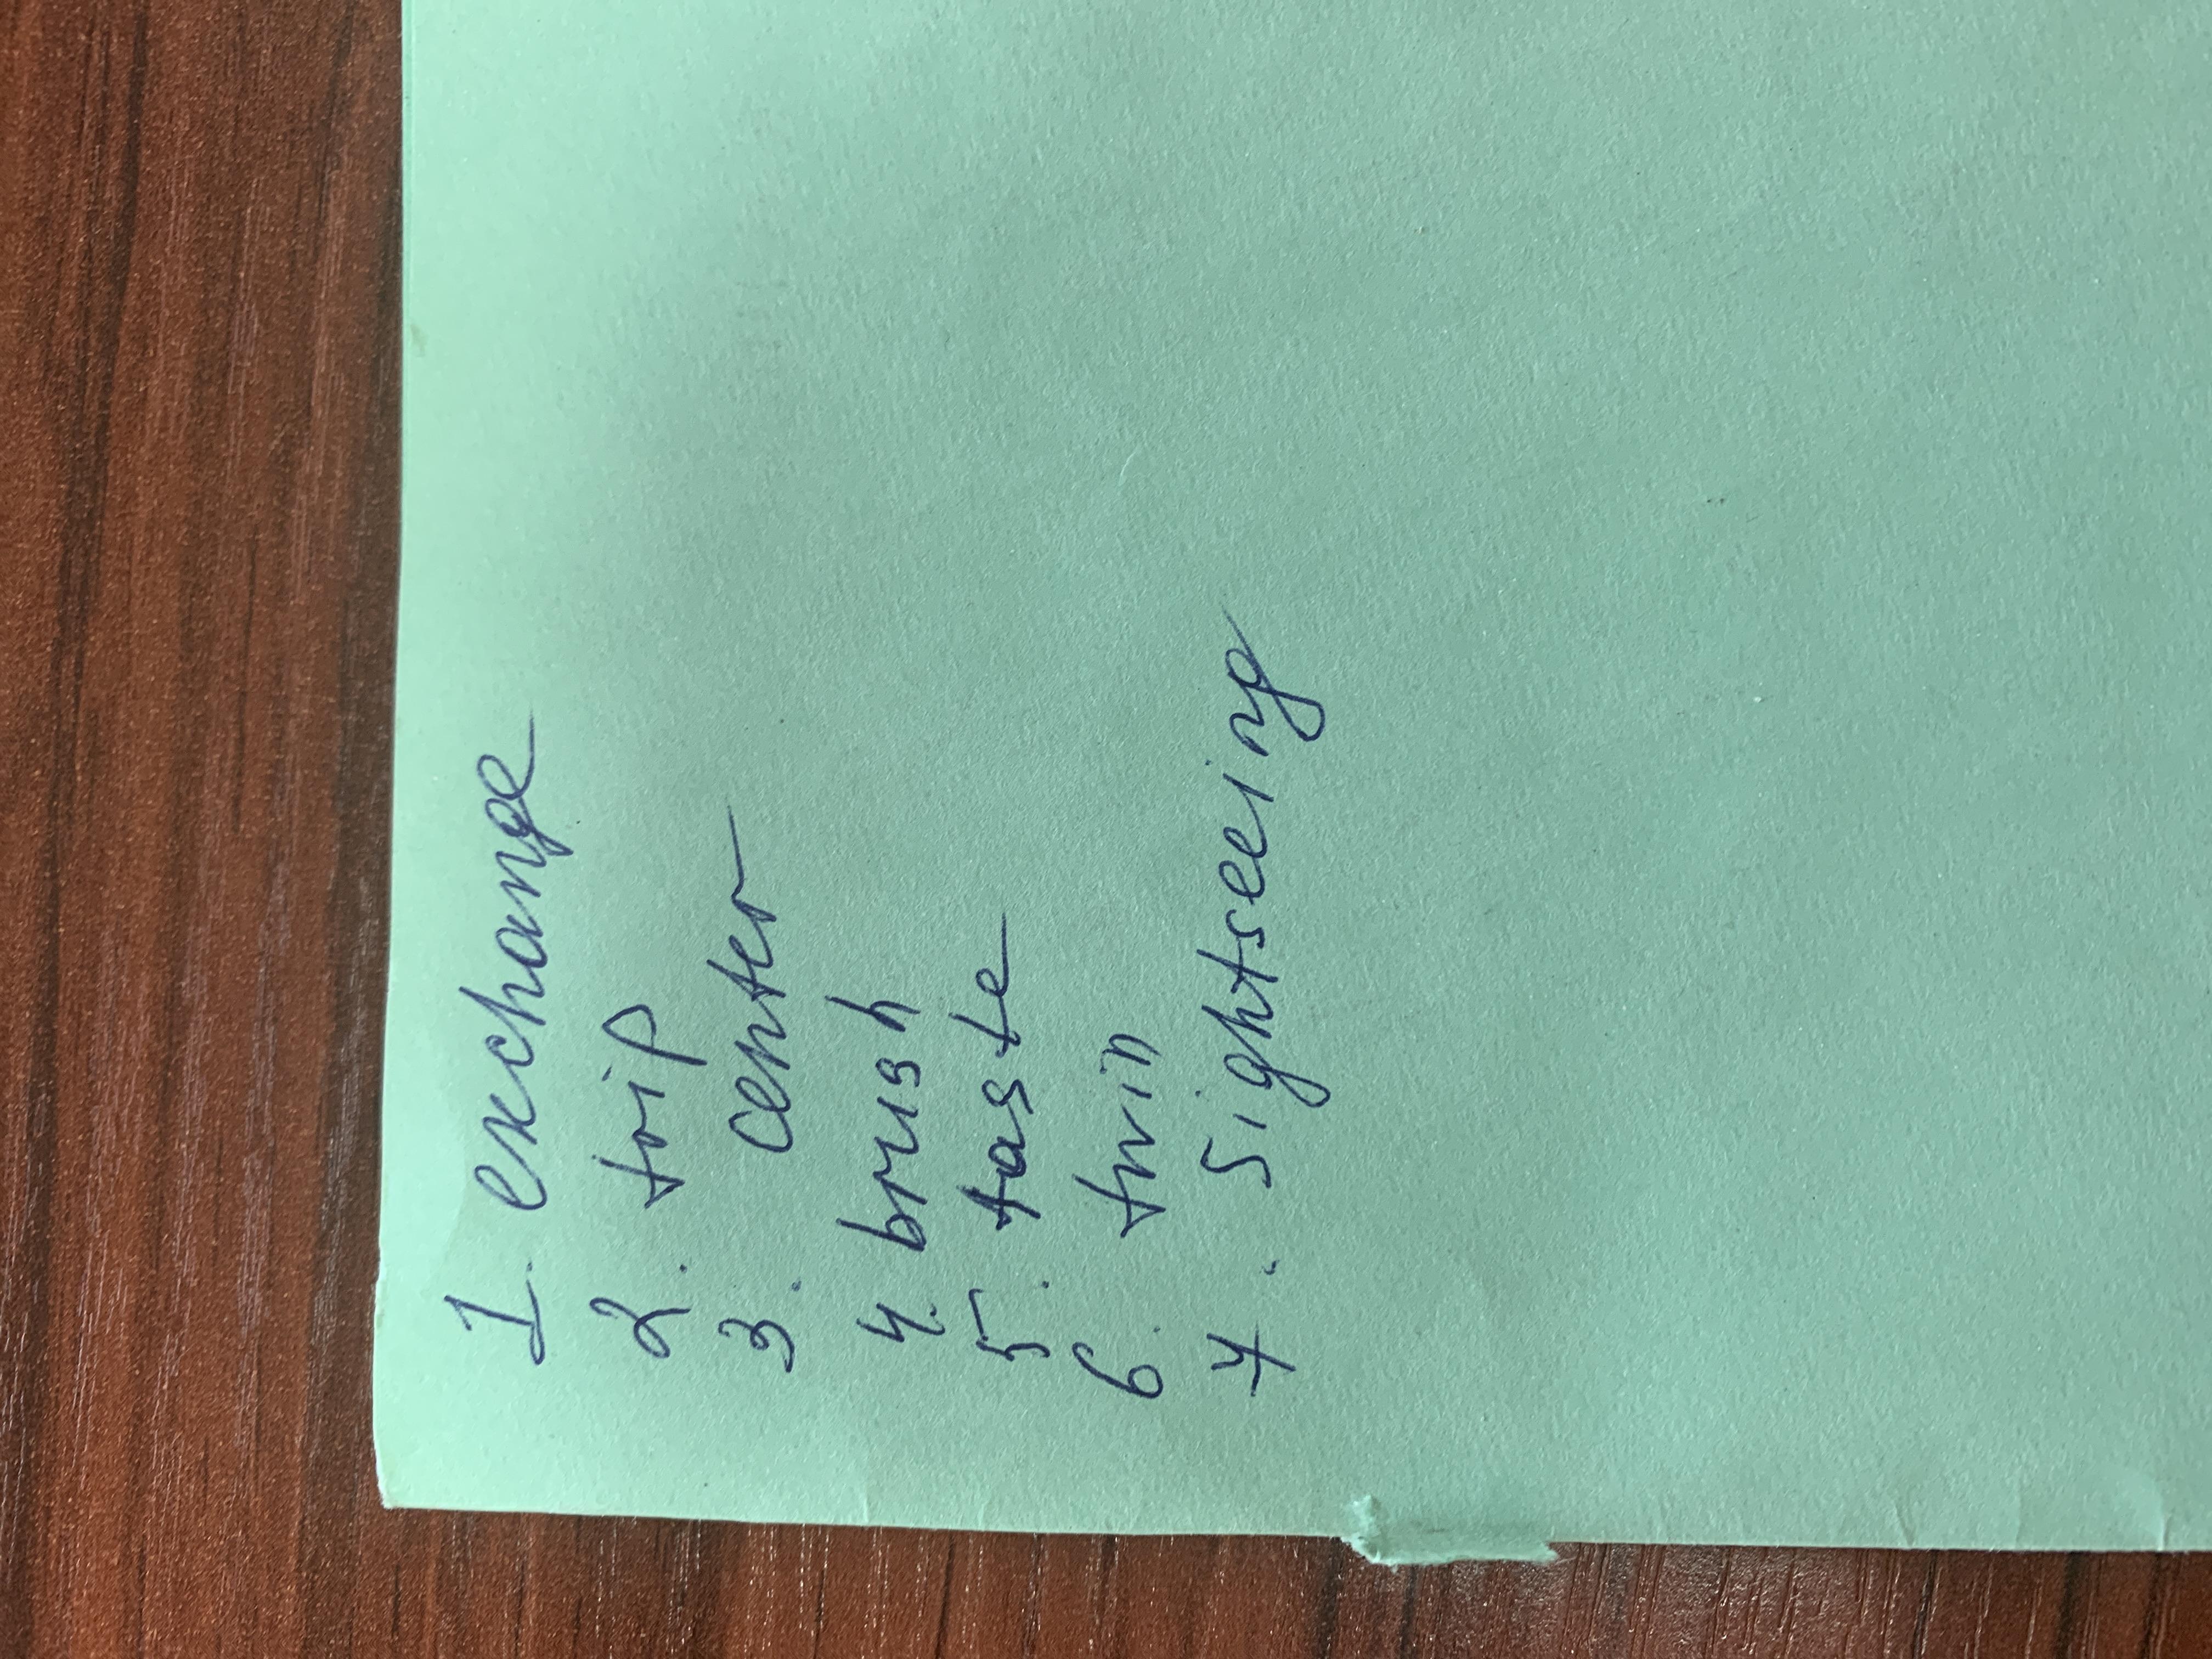 1. exchange
2. trip
3. center
4. brush
5. taste
6. twin
7. Sightseeing